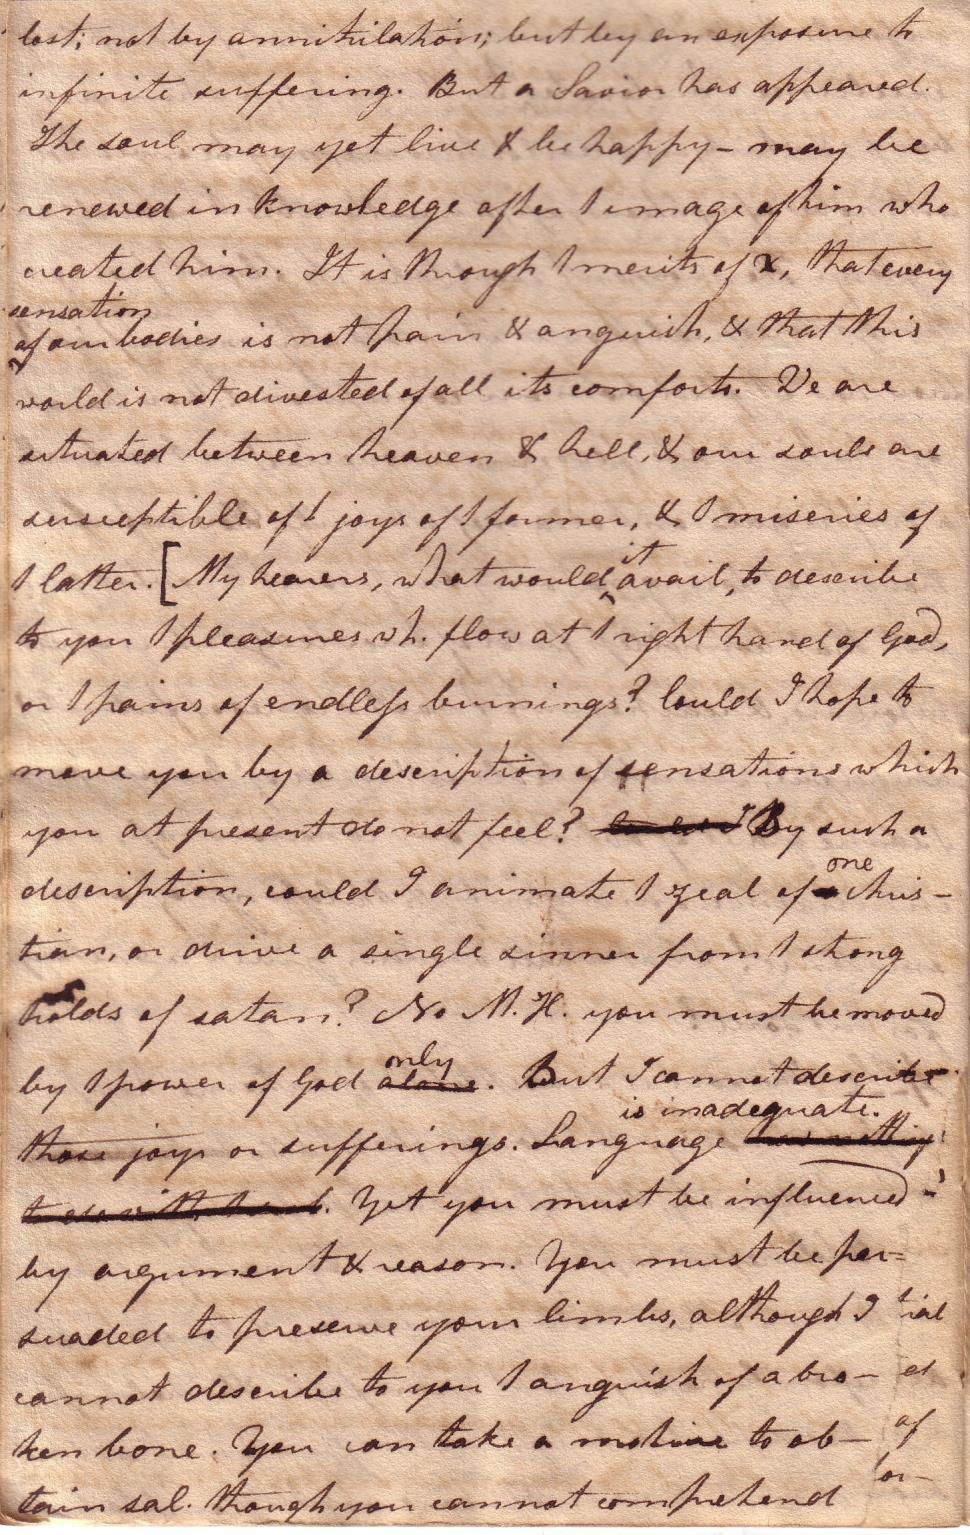 lost; not by annihilation; but by an exposure to
infinite suffering. But a Savior has appeared.
The soul may yet live & be happy – may be
renewed in knowledge after / image of him who
created him. It is through / merits of X, that every
sensation
of our bodies is not pain & anguish, & that this
world is not divested of all its comforts. We are
situated between heaven & hell, & our souls are
susceptible of / joys of / former, & / miseries of
/ latter. [My hearers, what would it avail, to describe
to you / pleasures wh. flow at / right hand of God,
or / pains of endless burnings? Could I hope to
move you by a description of sensations which
you at present do not feel? could I By such a
description, could I animate / zeal of one chris-
tian, or drive a single sinner from / strong
holds of satan? No M. H. you must be moved
by / power of God alone only. But I cannot describe
is inadequate.
those joys or sufferings. Language has nothing
to do with them. Yet you must be influenced
by argument & reason. You must be per=
suaded to preserve your limbs, although I
cannot describe to you / anguish of a bro-
ken bone. You can take a motive to ob-
tain sal. though you cannot comprehend